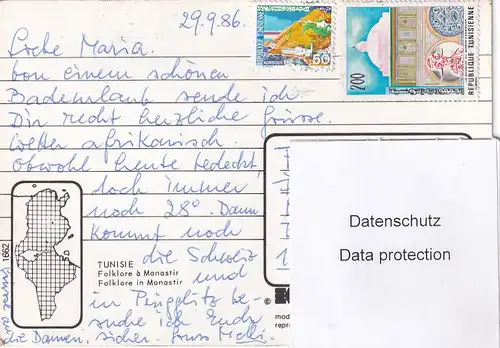 29.9.86.
Liebe Maria.
Von einem schönen
Badeurlaub sende ich
Dir recht herzliche Grüsse.
Wetter afrikanisch.
Obwohl heute bedeckt,
doch immer
noch 28°. Dann
kommt noch
die Schweiz
und
in Pingglitz be-
suche ich Euch
sicher. Gruss
die Damen,
REPUBLIQUE TUNISIENNE
200
50
1662
TUNISIE
Folklore à Monastir
Folklore in Monastir
©
mod
repr
Datenschutz
Data protection